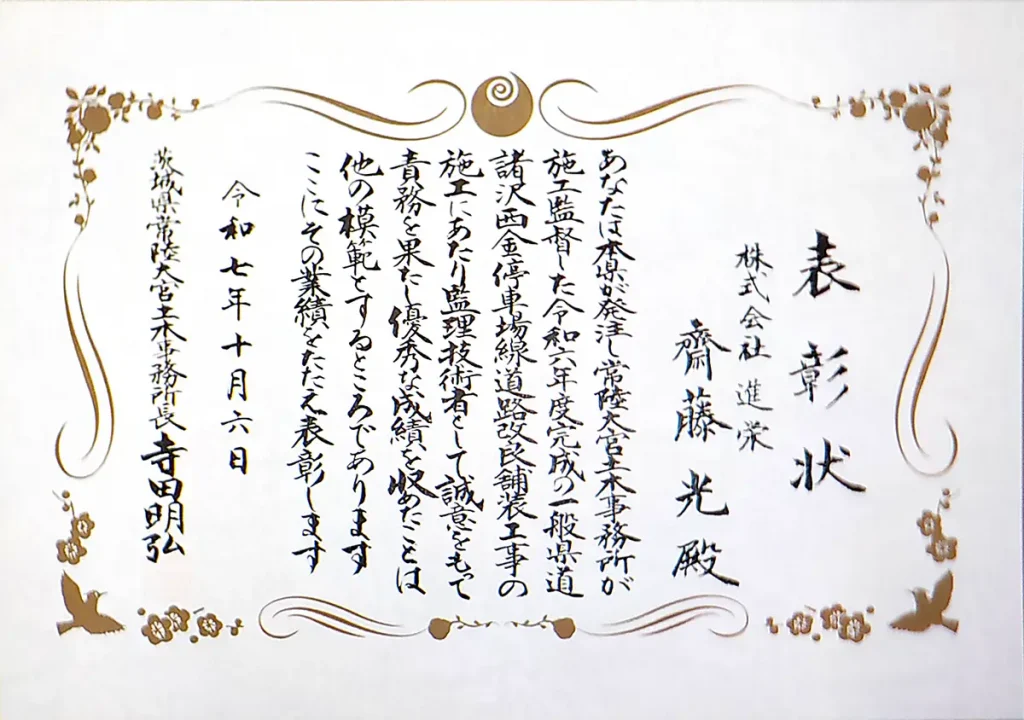 表彰状
株式会社 進栄
齋藤光殿
あなたは本県が発注し常陸大宮土木事務所が
施工監督した令和六年度完成の一般県道
諸沢西金停車場線道路改良舗装工事の
施工にあたり監理技術者として誠意をもって
責務を果たし優秀な成績を収めたことは
他の模範とするところであります
ここにその業績をたたえ表彰します
令和七年十月六日
茨城県常陸大宮土木事務所長 寺田明弘